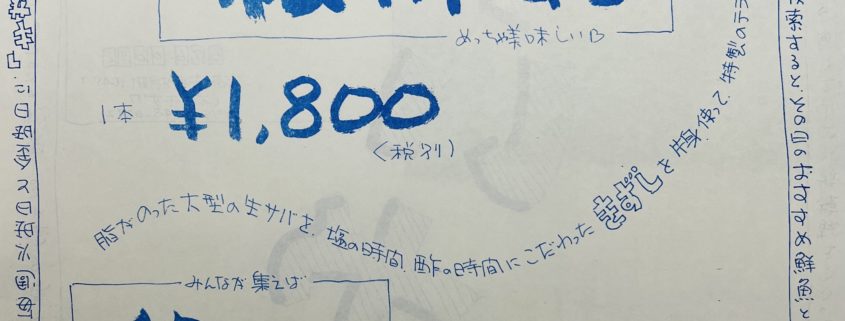 めっちゃ美味しい
1本
¥1,800
(税別)
脂がのった大型の生サバを、塩の時間、酢の時間にこだわったきずしを片身使って、特製の
みんなが集えば
検索すると、その日のおすすめ鮮魚と
毎週火曜日と金曜日に